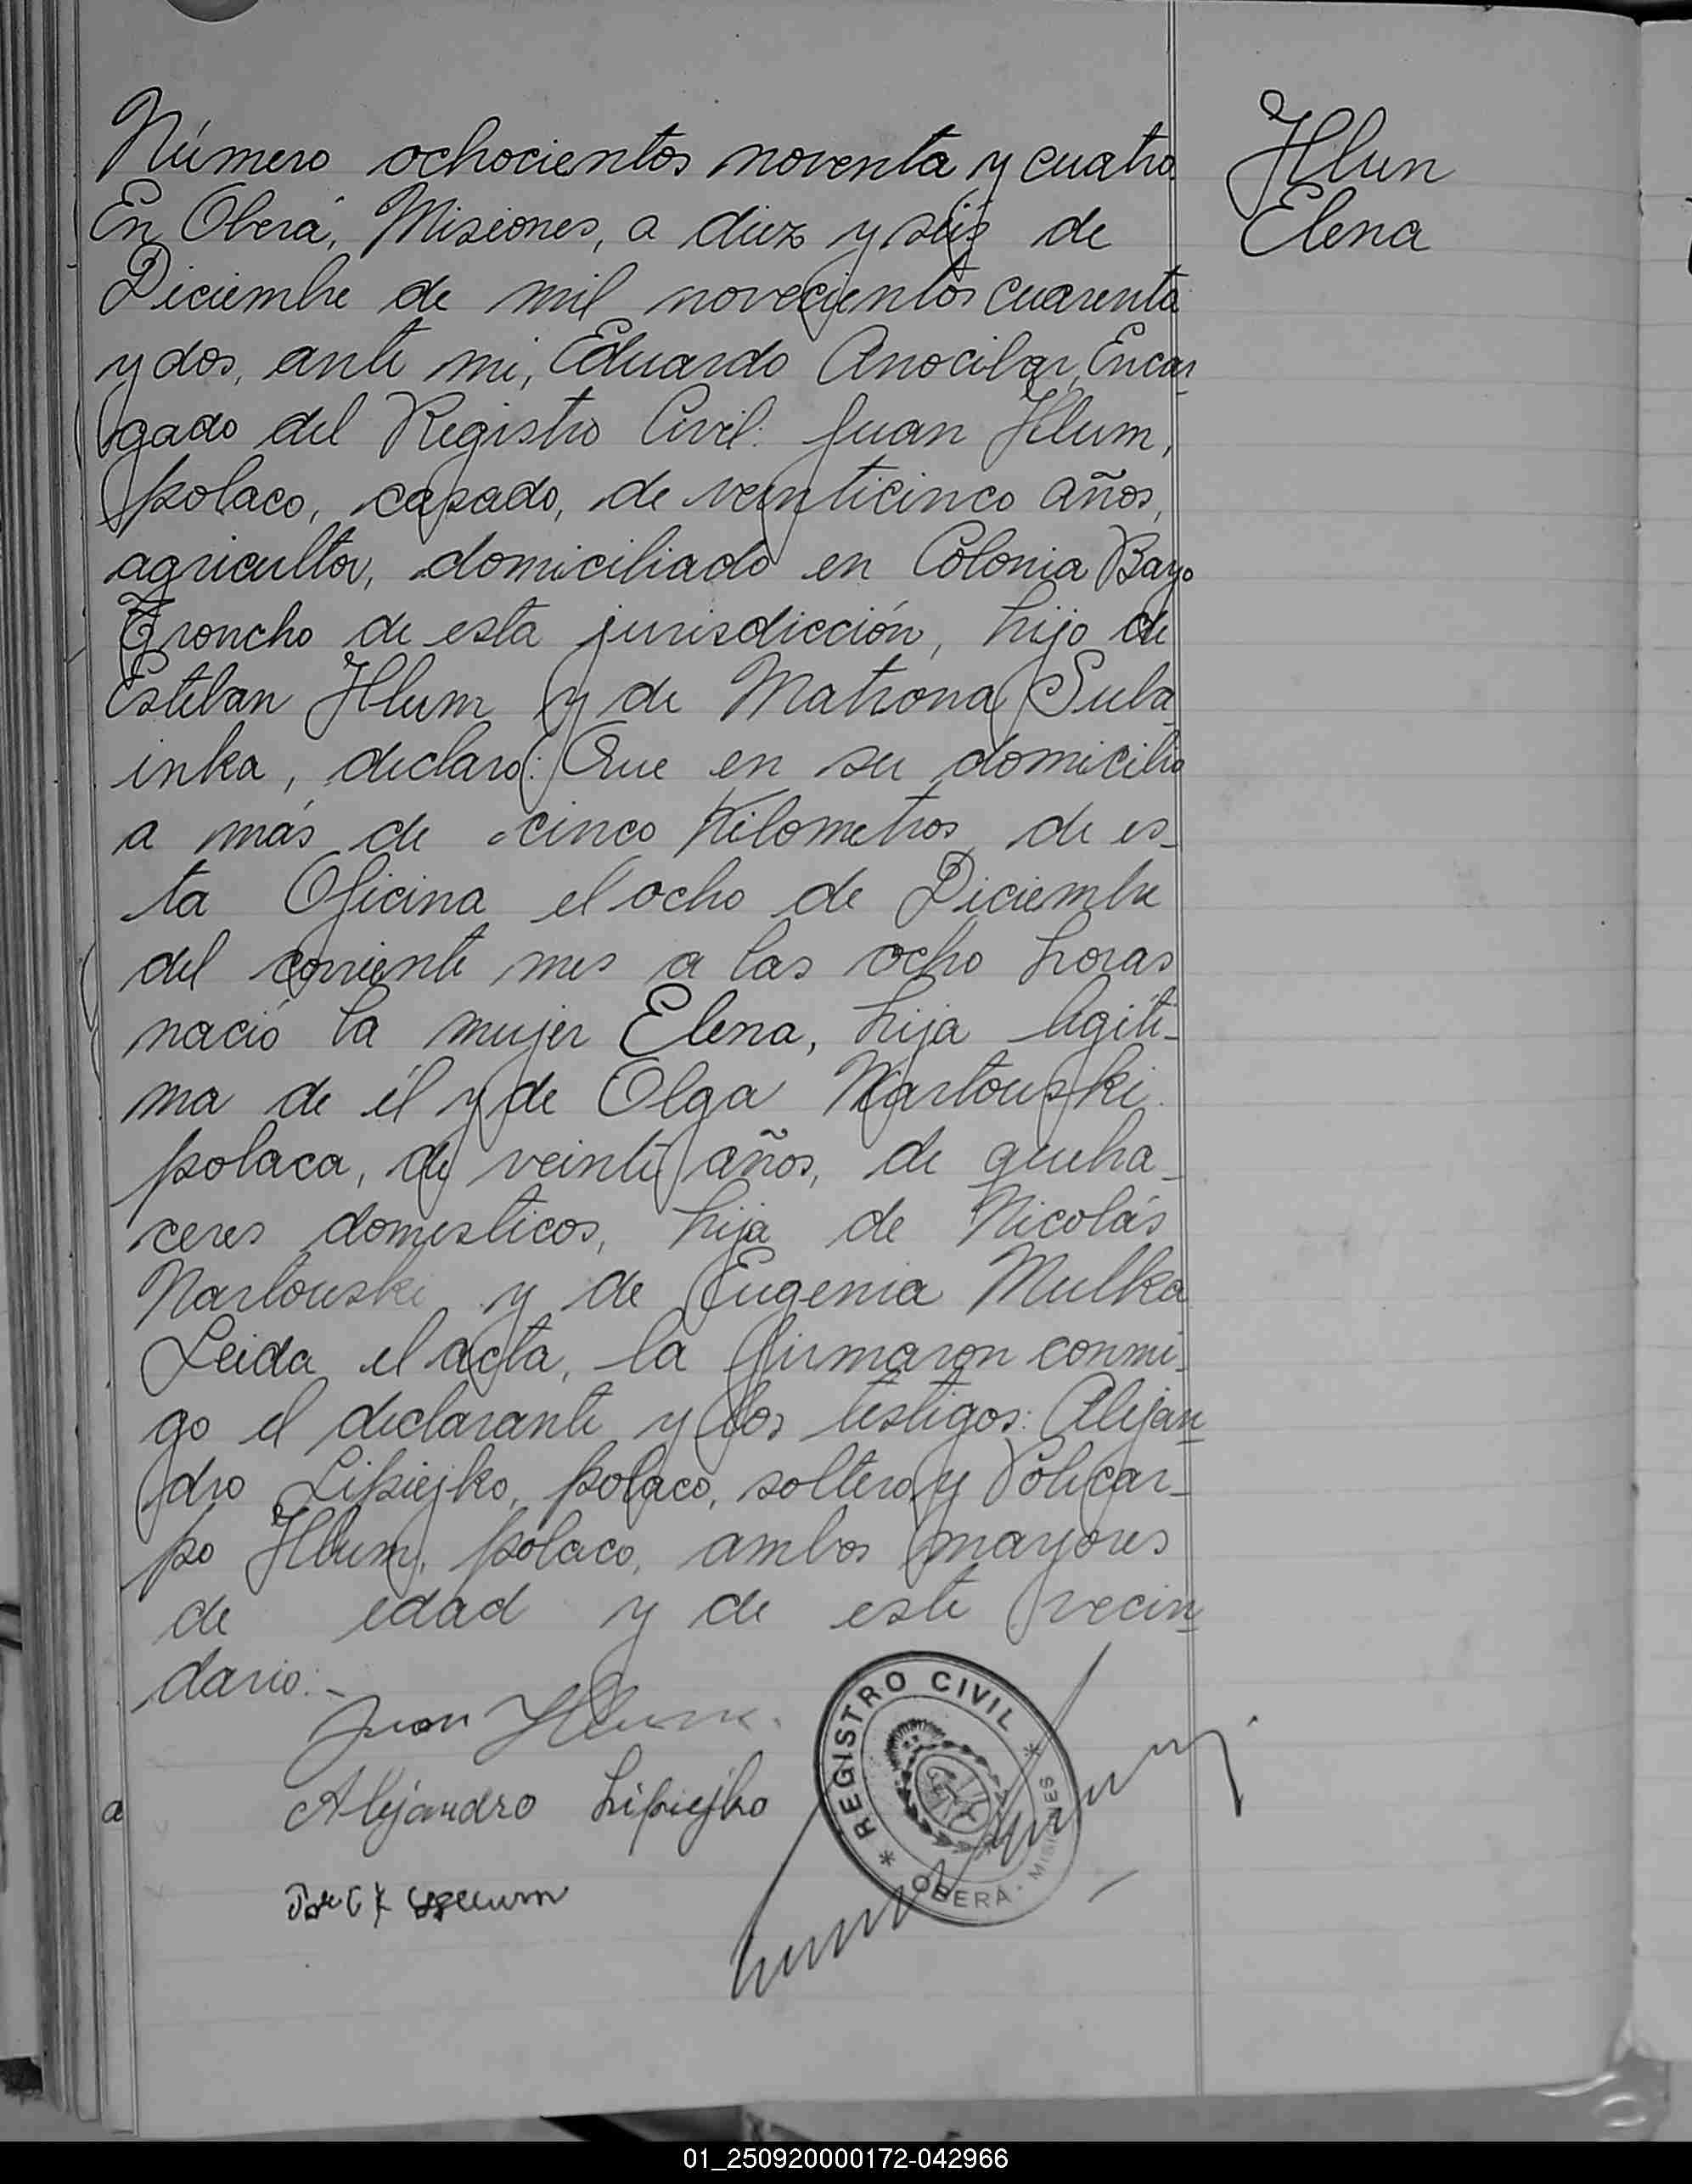 Número ochocientos noventa y cuatro
En Oberá, Misiones, a diez y séis de
Diciembre de mil novecientos cuarenta
y dos, ante mi, Eduardo Anocibar, Encar
gado del Registro Civil: Juan Hlum,
polaco, casado, de veinticinco años,
agricultor, domiciliado en Colonia Bayo
Troncho de esta jurisdicción, hijo de
Esteban Hlum y de Matrona Suba_
inka, declaró: Que en su domicilio
a más de cinco Kilometros de es_
ta Oficina el ocho de Diciembre
del corriente mes a las ocho horas
nació la mujer Elena, hija legiti_
ma de él y de Olga Nartouski
polaca, de veinte años, de queha_
ceres domesticos, hija de Nicolás
Nartouski y de Eugenia Mulka
Leida el acta, la firmaron conmi_
go el declarante y los testigos: Alejan
dro Lipiejko, polaco, soltero y Policar_
po Hlum, polaco, ambos mayores
de edad y de este vecin
dario.-
Juan Hlum.
Alejandro Lipiejko
REGISTRO CIVIL
OBERÁ - MISIONES
Hlun
Elena
a
01_250920000172-042966